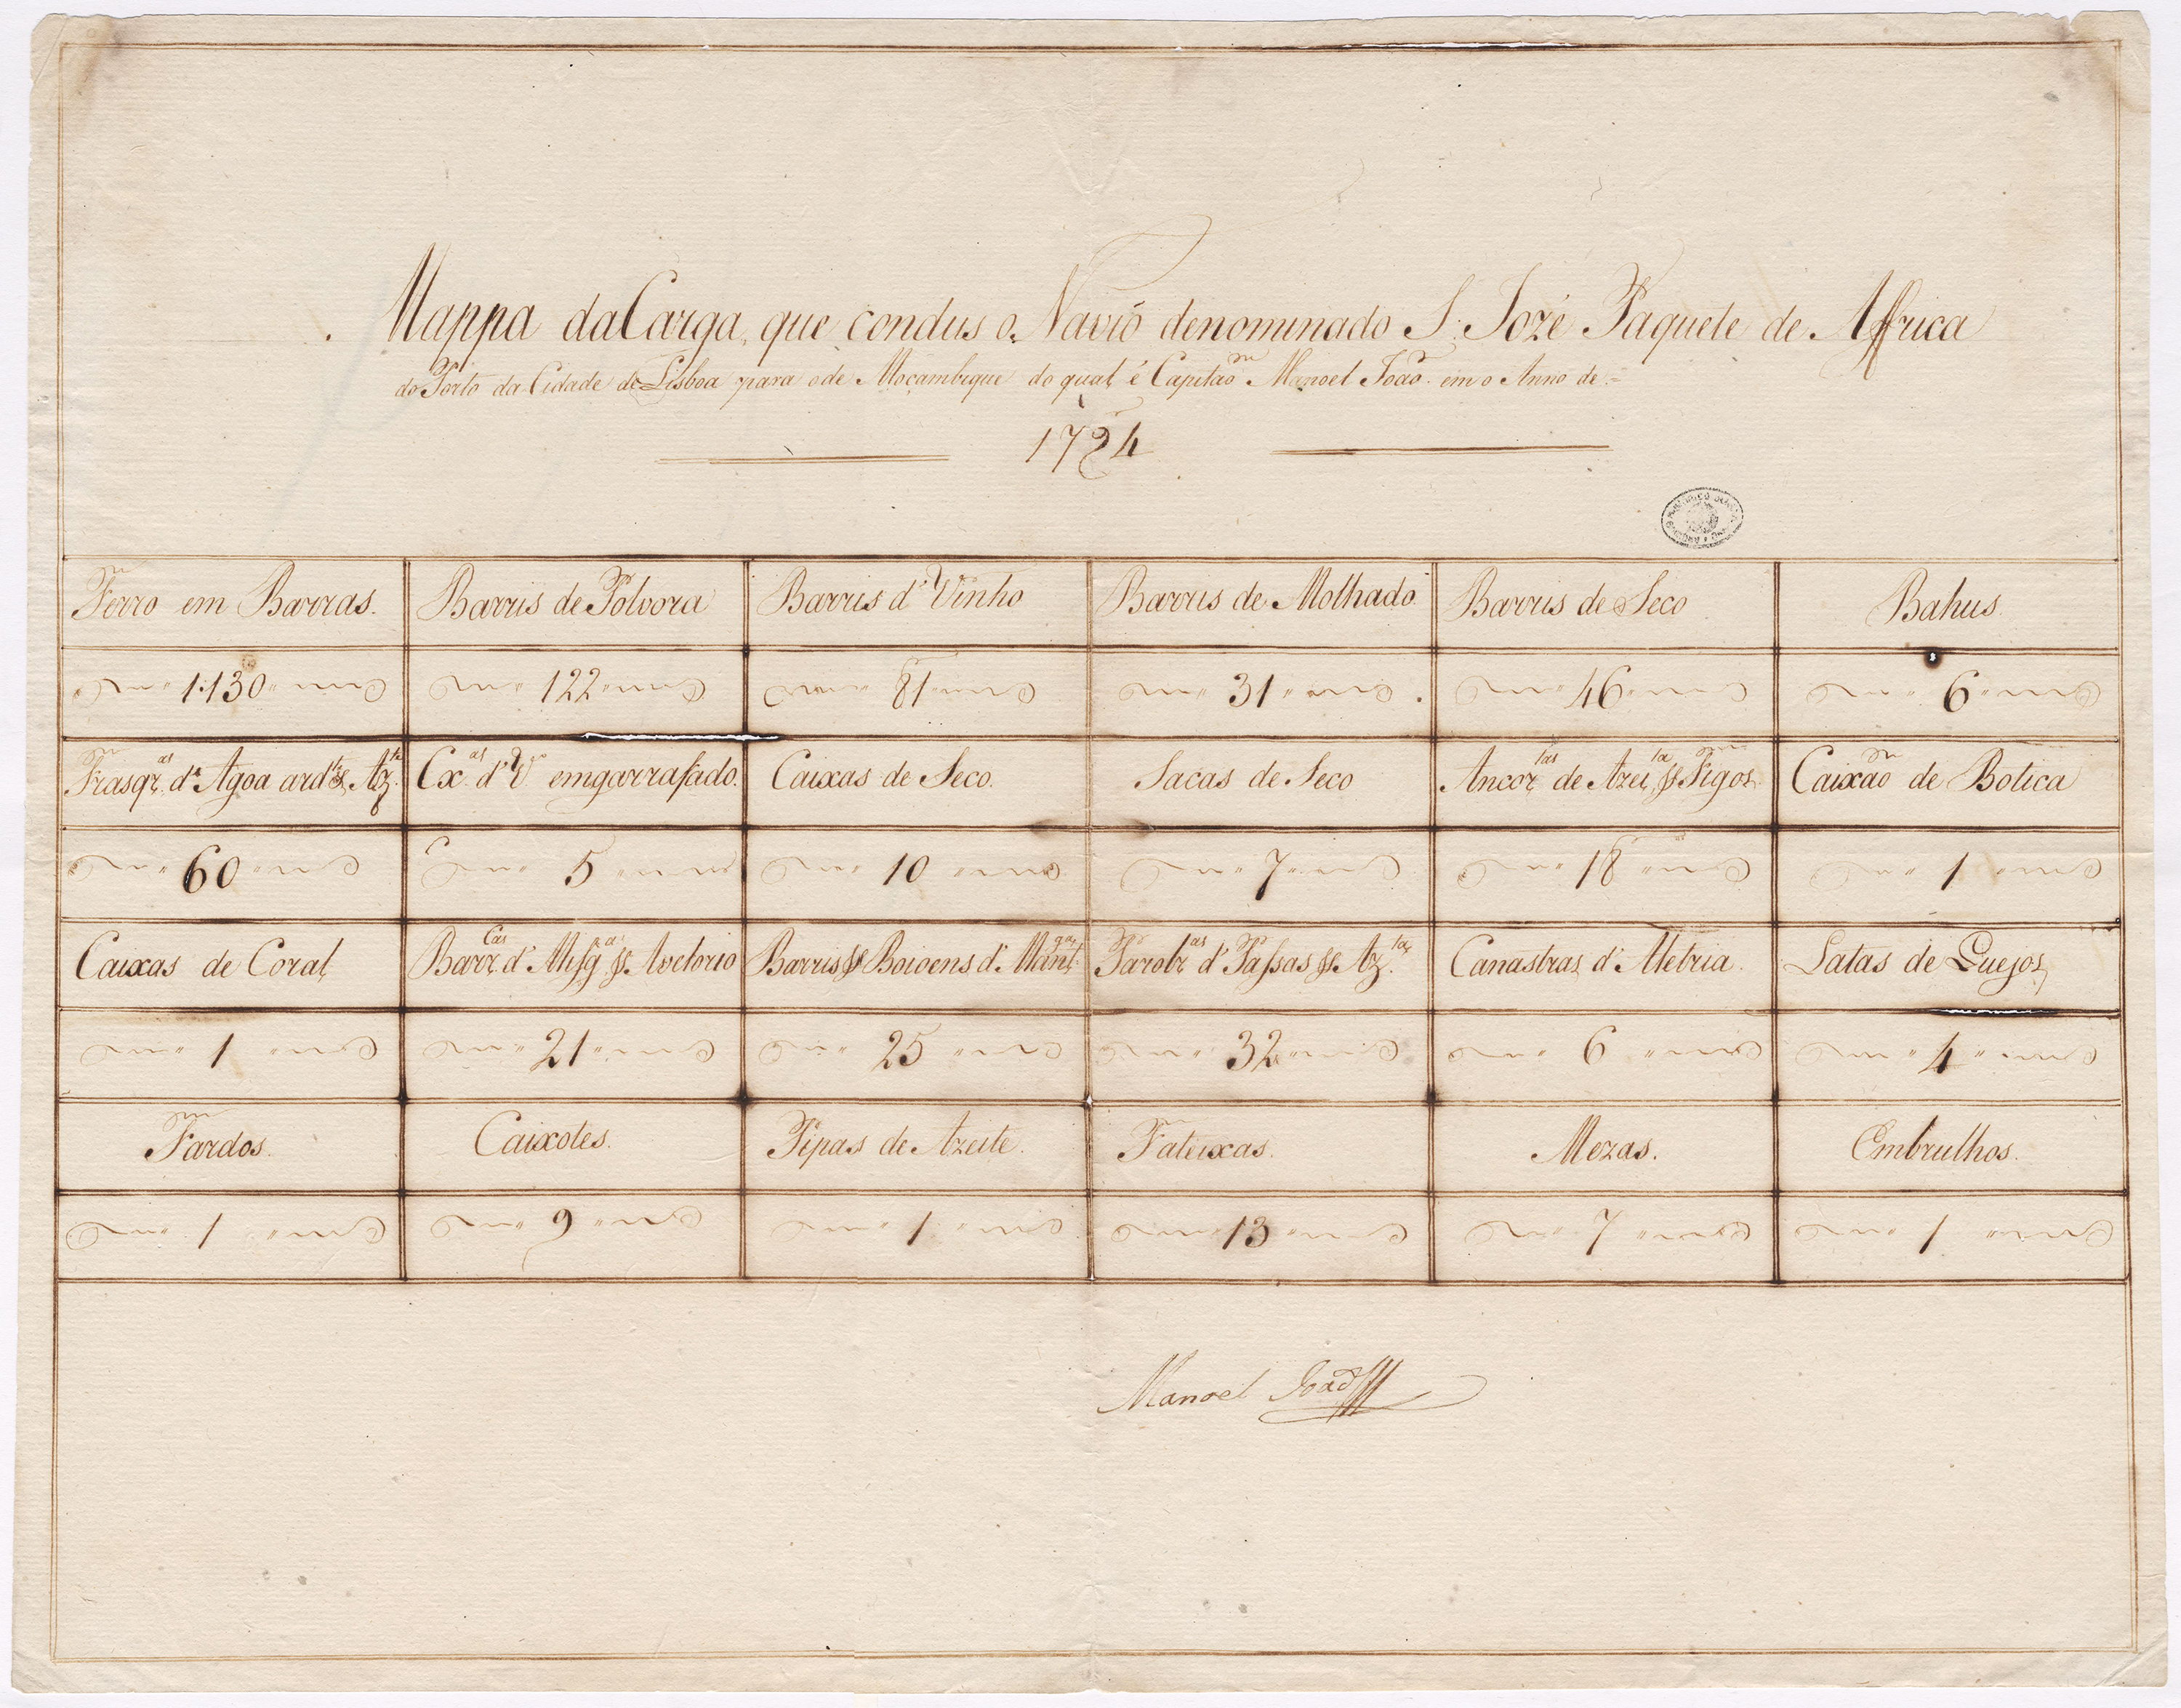 Mappa da Carga, que condus o Navio denominado S. Jozé Paquete de Affrica
do Porto da Cidade de Lisboa para o de Moçambique do qual é Capitão Manoel João. em o Anno de =
1794
Ferro em Barras. Barris de Polvora Barris d' Vinho Barris de Molhado Barris de Seco Bahus
1130 122 81 31 46 6
Frasqr.as d' Agoa ard.te, Az.ta Cx.as d' V.o emgarrafado. Caixas de Seco. Sacas de Seco Ancor.tas de Azei.ta, Figos. Caixão de Botica
60 5 10 7 18 1
Caixas de Coral Barr.cas d' Avelorio Barris Boioens d. Mant.ga d' Passas Az.ta Canastras d' Aletria. Latas de Quejos
1 21 25 32 6 4
Fardos. Caixotes. Pipas de Azeite. Fateixas. Mezas. Embrulhos.
1 9 1 13 7 1
Manoel João